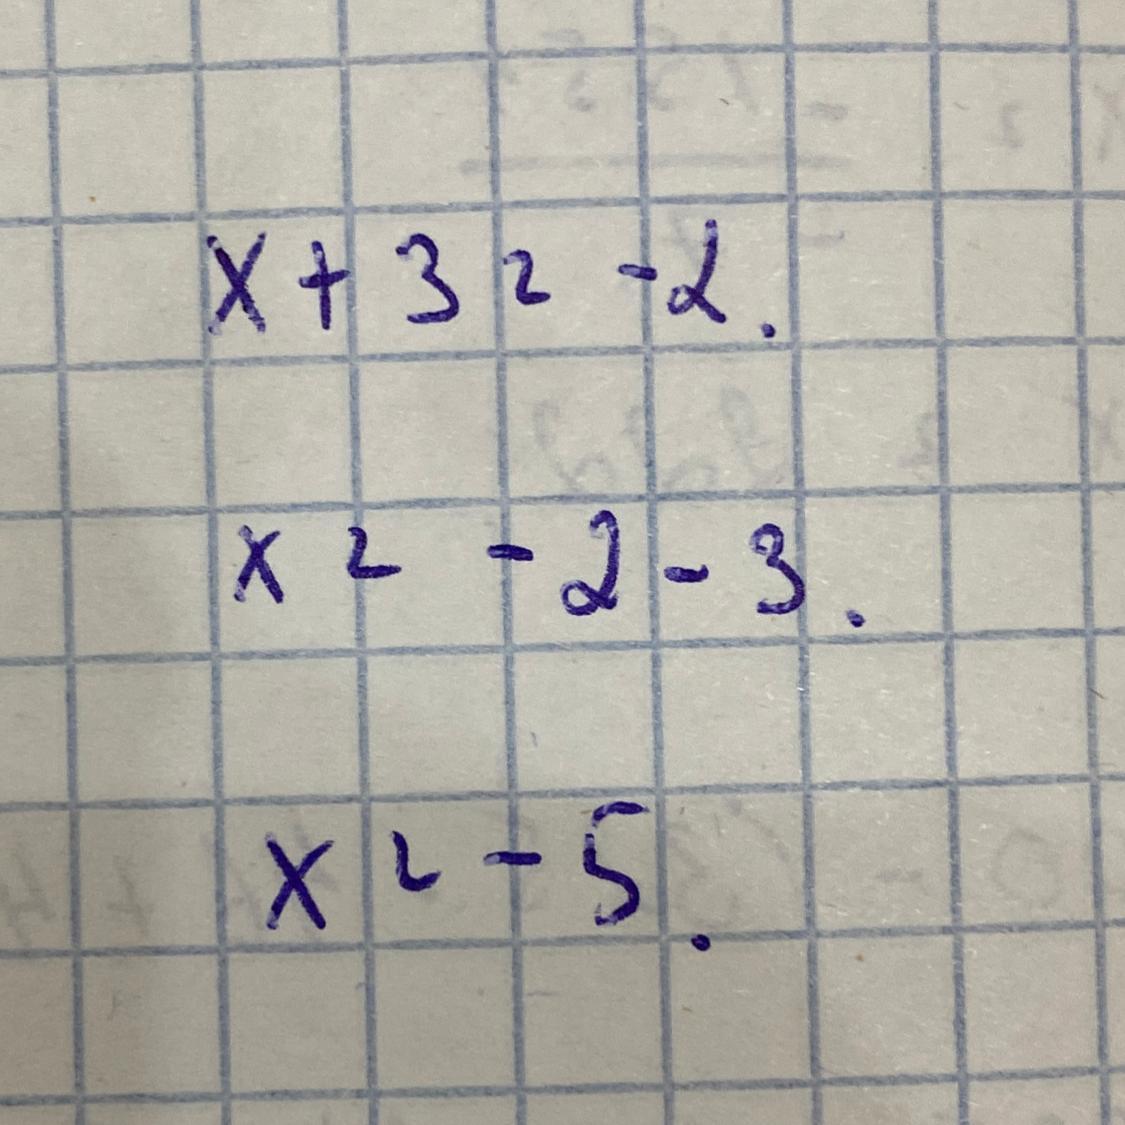 x + 3 = -2.
x = -2 - 3.
x = -5.